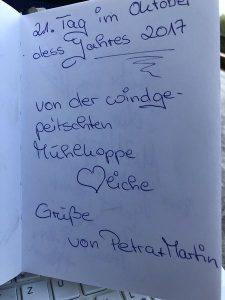 21. Tag im Oktober
dess Jahres 2017
von der windge-
peitschten
Mühlkoppe
♡liche
Grüße
von Petra+Martin